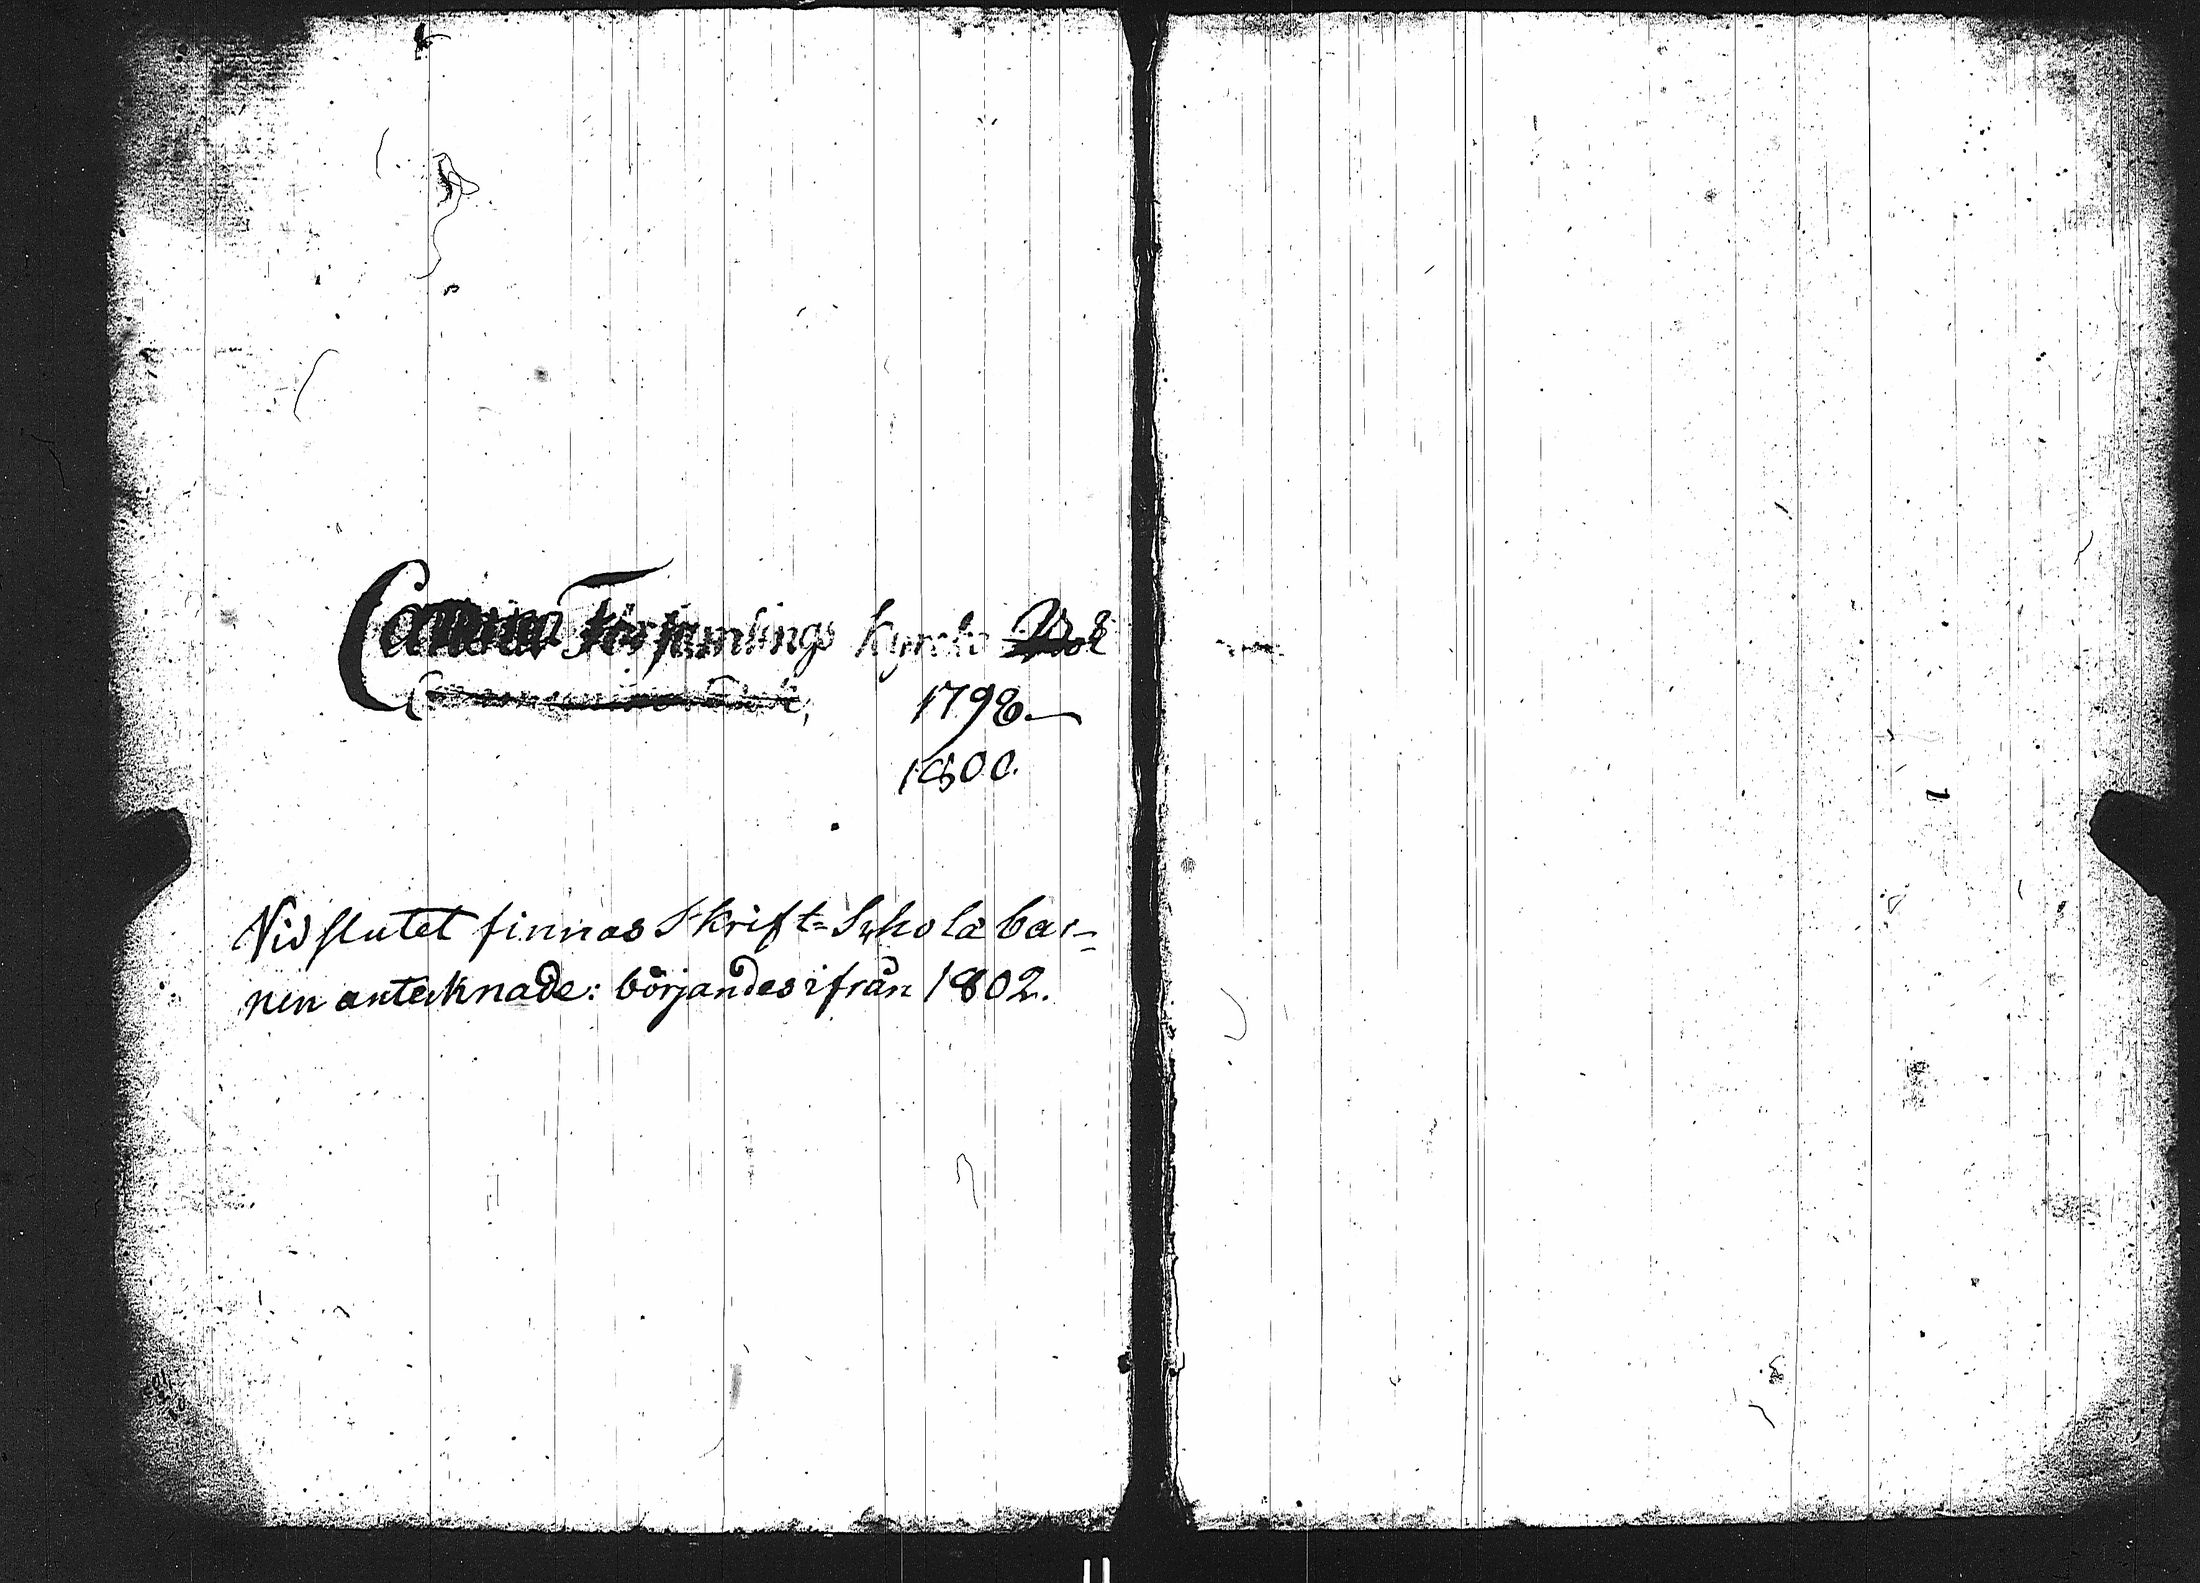 Församlings Kyrcko Bok
1798.—
1800.
Vid slutet finnas Skrift= Schole bar=
nen anteknade: börjandes ifrån 1802.